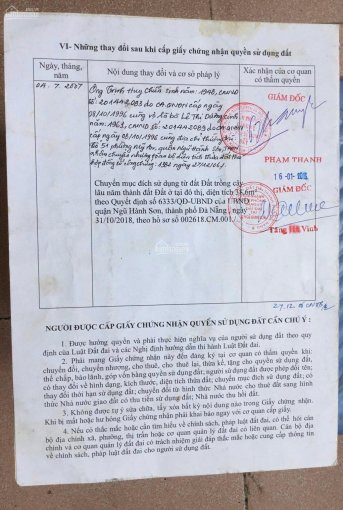 VI- Những thay đổi sau khi cấp giấy chứng nhận quyền sử dụng đất
Ngày, tháng, năm
Nội dung thay đổi và cơ sở pháp lý
Xác nhận của cơ quan có thẩm quyền
Ông Trịnh Huy Chữa sinh năm: 1948, CMND
số: 201442083 do CA
cấp ngày
08/10/1996 cùng vợ là bà Lê Thị
năm: 1963, CMND số: 201442093 do
cấp ngày 08/10/1996 cùng địa chỉ
Tổ 51 phường Mỹ An, quận Ngũ Hành Sơn,
GIÁM ĐỐC
PHẠM THANH
16 -01-
GIÁM ĐỐC
Vinh
Chuyển mục đích sử dụng từ đất Đất trồng cây
lâu năm thành đất Đất ở tại đô thị, diện tích
theo Quyết định số 6333/QĐ-UBND của UBND
quận Ngũ Hành Sơn, thành phố Đà Nẵng, ngày
31/10/2018, theo hồ sơ số 002618.CM.001.
NGƯỜI ĐƯỢC CẤP GIẤY CHỨNG NHẬN QUYỀN SỬ DỤNG ĐẤT CẦN CHÚ Ý :
1. Được hưởng quyền và phải thực hiện nghĩa vụ của người sử dụng đất theo quy
định của Luật Đất đai và các Nghị định hướng dẫn thi hành Luật Đất đai.
2. Phải mang Giấy chứng nhận này đến đăng ký tại cơ quan có thẩm quyền khi:
chuyển đổi, chuyển nhượng, cho thuê, cho thuê lại, thừa kế, tặng cho quyền sử dụng đất,
thế chấp, bảo lãnh, góp vốn bằng quyền sử dụng đất; người sử dụng đất được phép đổi tên;
có thay đổi về hình dạng, kích thước, diện tích thửa đất; chuyển mục đích sử dụng đất; có
thay đổi thời hạn sử dụng đất; chuyển đổi từ hình thức Nhà nước cho thuê đất sang hình
thức Nhà nước giao đất có thu tiền sử dụng đất; Nhà nước thu hồi đất.
3. Không được tự ý sửa chữa, tẩy xóa bất kỳ nội dung nào trong Giấy chứng nhận.
Khi bị mất hoặc hư hỏng Giấy chứng nhận phải khai báo ngay với cơ quan cấp giấy.
4. Nếu có thắc mắc hoặc cần tìm hiểu về chính sách, pháp luật đất đai, có thể hỏi cán
bộ địa chính xã, phường, thị trấn hoặc cơ quan quản lý đất đai có liên quan. Cán bộ địa
chính và cơ quan quản lý đất đai có trách nhiệm giải đáp thắc mắc hoặc cung cấp thông tin
về chính sách, pháp luật đất đai cho người sử dụng đất.